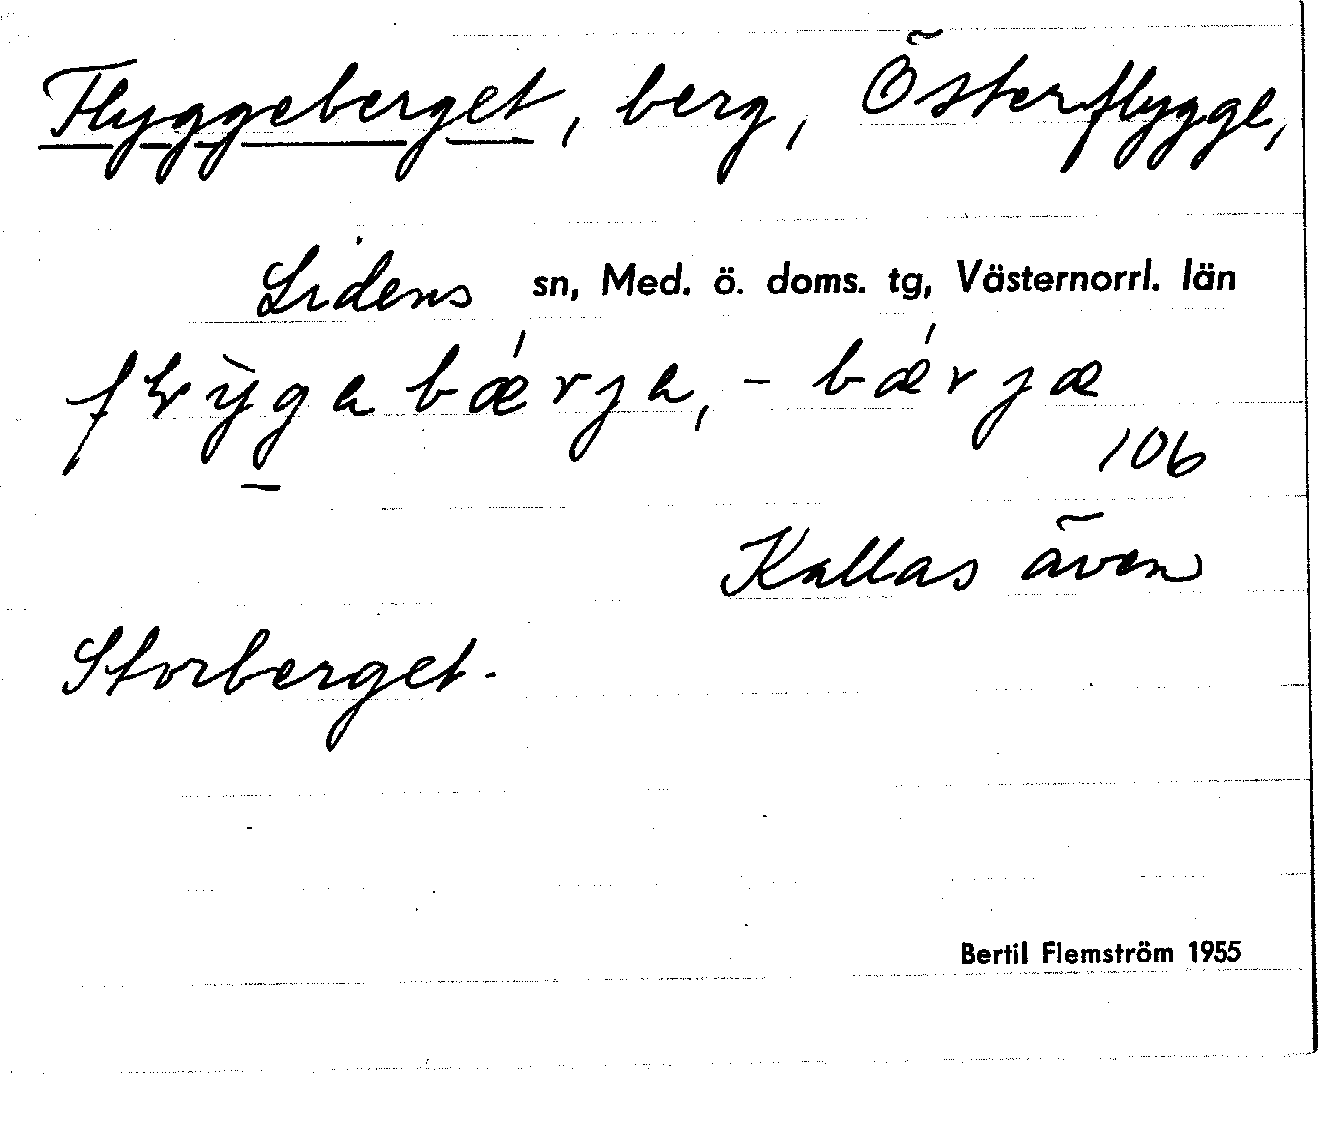 Flyggeberget, berg, Österflygge,
Lidens sn, Med. ö. doms. tg, Västernorrl. län
flỳga bǽrja, - bǽrjæ
106
Kallas även
Storberget.
Bertil Flemström 1955